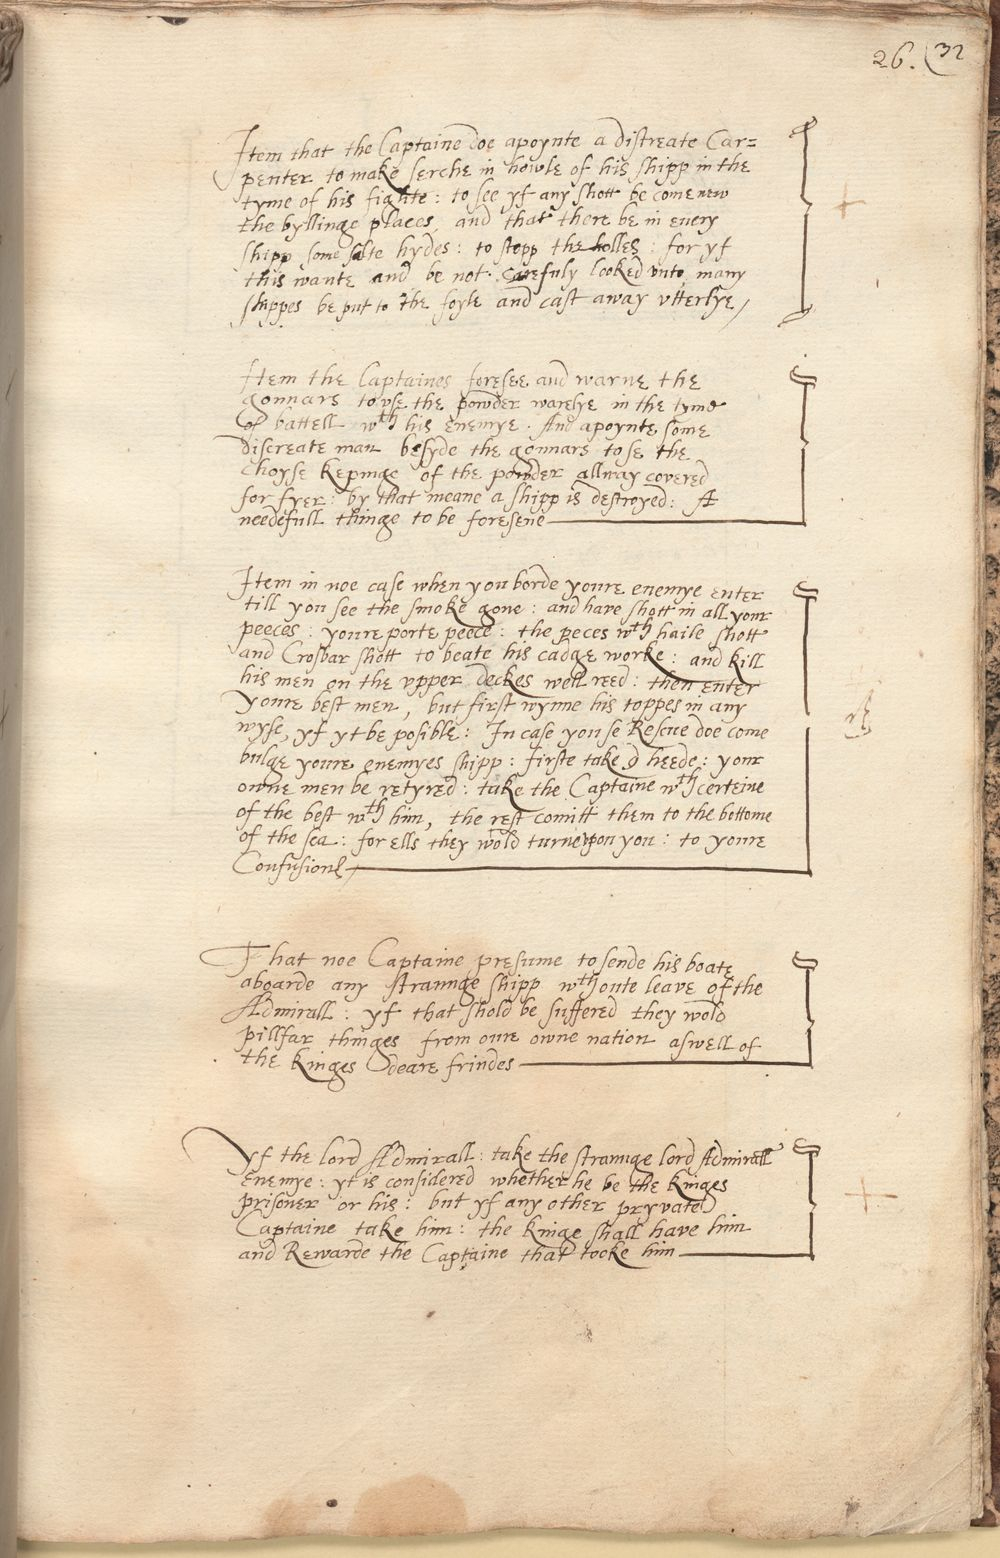 26. (32
Item that the Captaine doe apoynte a distreate Car=
penter to make serche in howle of his shipp in the
tyme of his fighte : to see yf any shott be come new
the byllinge places, and that there be in euery
shipp some salte hydes : to stopp the holles : for yf
this wante and be not carefuly looked vnto many
shippes be put to the foyle and cast away vtterlye /
Item the Captaines foresee and warne the
gonnars to vse the powder warelye in the tyme
of battell wth his enemye . And apoynte some
discreate man besyde the gonnars to se the
choyse kepinge of the powder allway covered
for fyer : by that meane a shipp is destroyed : A
needefull thinge to be foresene
Item in noe case when you borde youre enemye enter
till you see the smoke gone : and have shott in all your
peeces : youre porte peece : the peces wth haile shott
and Crosbar shott to beate his cadge worke : and kill
his men on the vpper deckes well reed : then enter
youre best men, but first wynne his toppes in any
wyse, yf yt be posible : In case you se Rescue doe come
bulge youre enemyes shipp : firste take heede : your
owne men be retyred : take the Captaine wth certeine
of the best wth him, the rest comitt them to the bottome
of the sea : for ells they wold turne vpon you : to youre
Confusione /
That noe Captaine presume to sende his boate
aboarde any straunge shipp wthoute leave of the
Admirall : yf that shold be suffered they wold
pillfar thinges from oure owne nation aswell of
the kinges deare frindes
Yf the lord Admirall : take the straunge lord Admirall
enemye : yt is considered whether he be the kinges
prisoner or his : but yf any other pryvate
Captaine take him : the kinge shall have him
and Rewarde the Captaine that tooke him